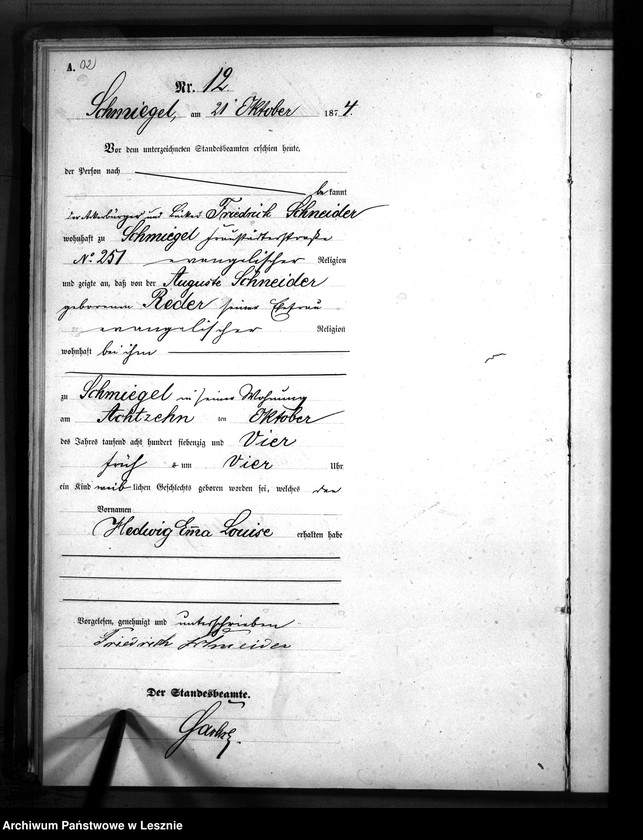 A. 02
Nr. 12.
Schmiegel, am 21 Oktober 1874.
Vor dem unterzeichneten Standesbeamten erschien heute,
der Person nach
bekannt
der Ackerbürger und Bäcker Friedrich Schneider
wohnhaft zu Schmiegel Fraustädterstraße
No. 251 evangelischer Religion
und zeigte an, daß von der Auguste Schneider
geborenen Reder seiner Ehefrau
evangelischer Religion
wohnhaft bei ihm
zu Schmiegel in seiner Wohnung
am Achtzehn ten Oktober
des Jahres tausend acht hundert siebenzig und Vier
früh um Vier Uhr
ein Kind weiblichen Geschlechts geboren worden sei, welches den
Vornamen
Hedwig Em̄a Louise erhalten habe
Vorgelesen, genehmigt und unterschrieben
Friedrich Schneider
Der Standesbeamte.
Archiwum Państwowe w Lesznie